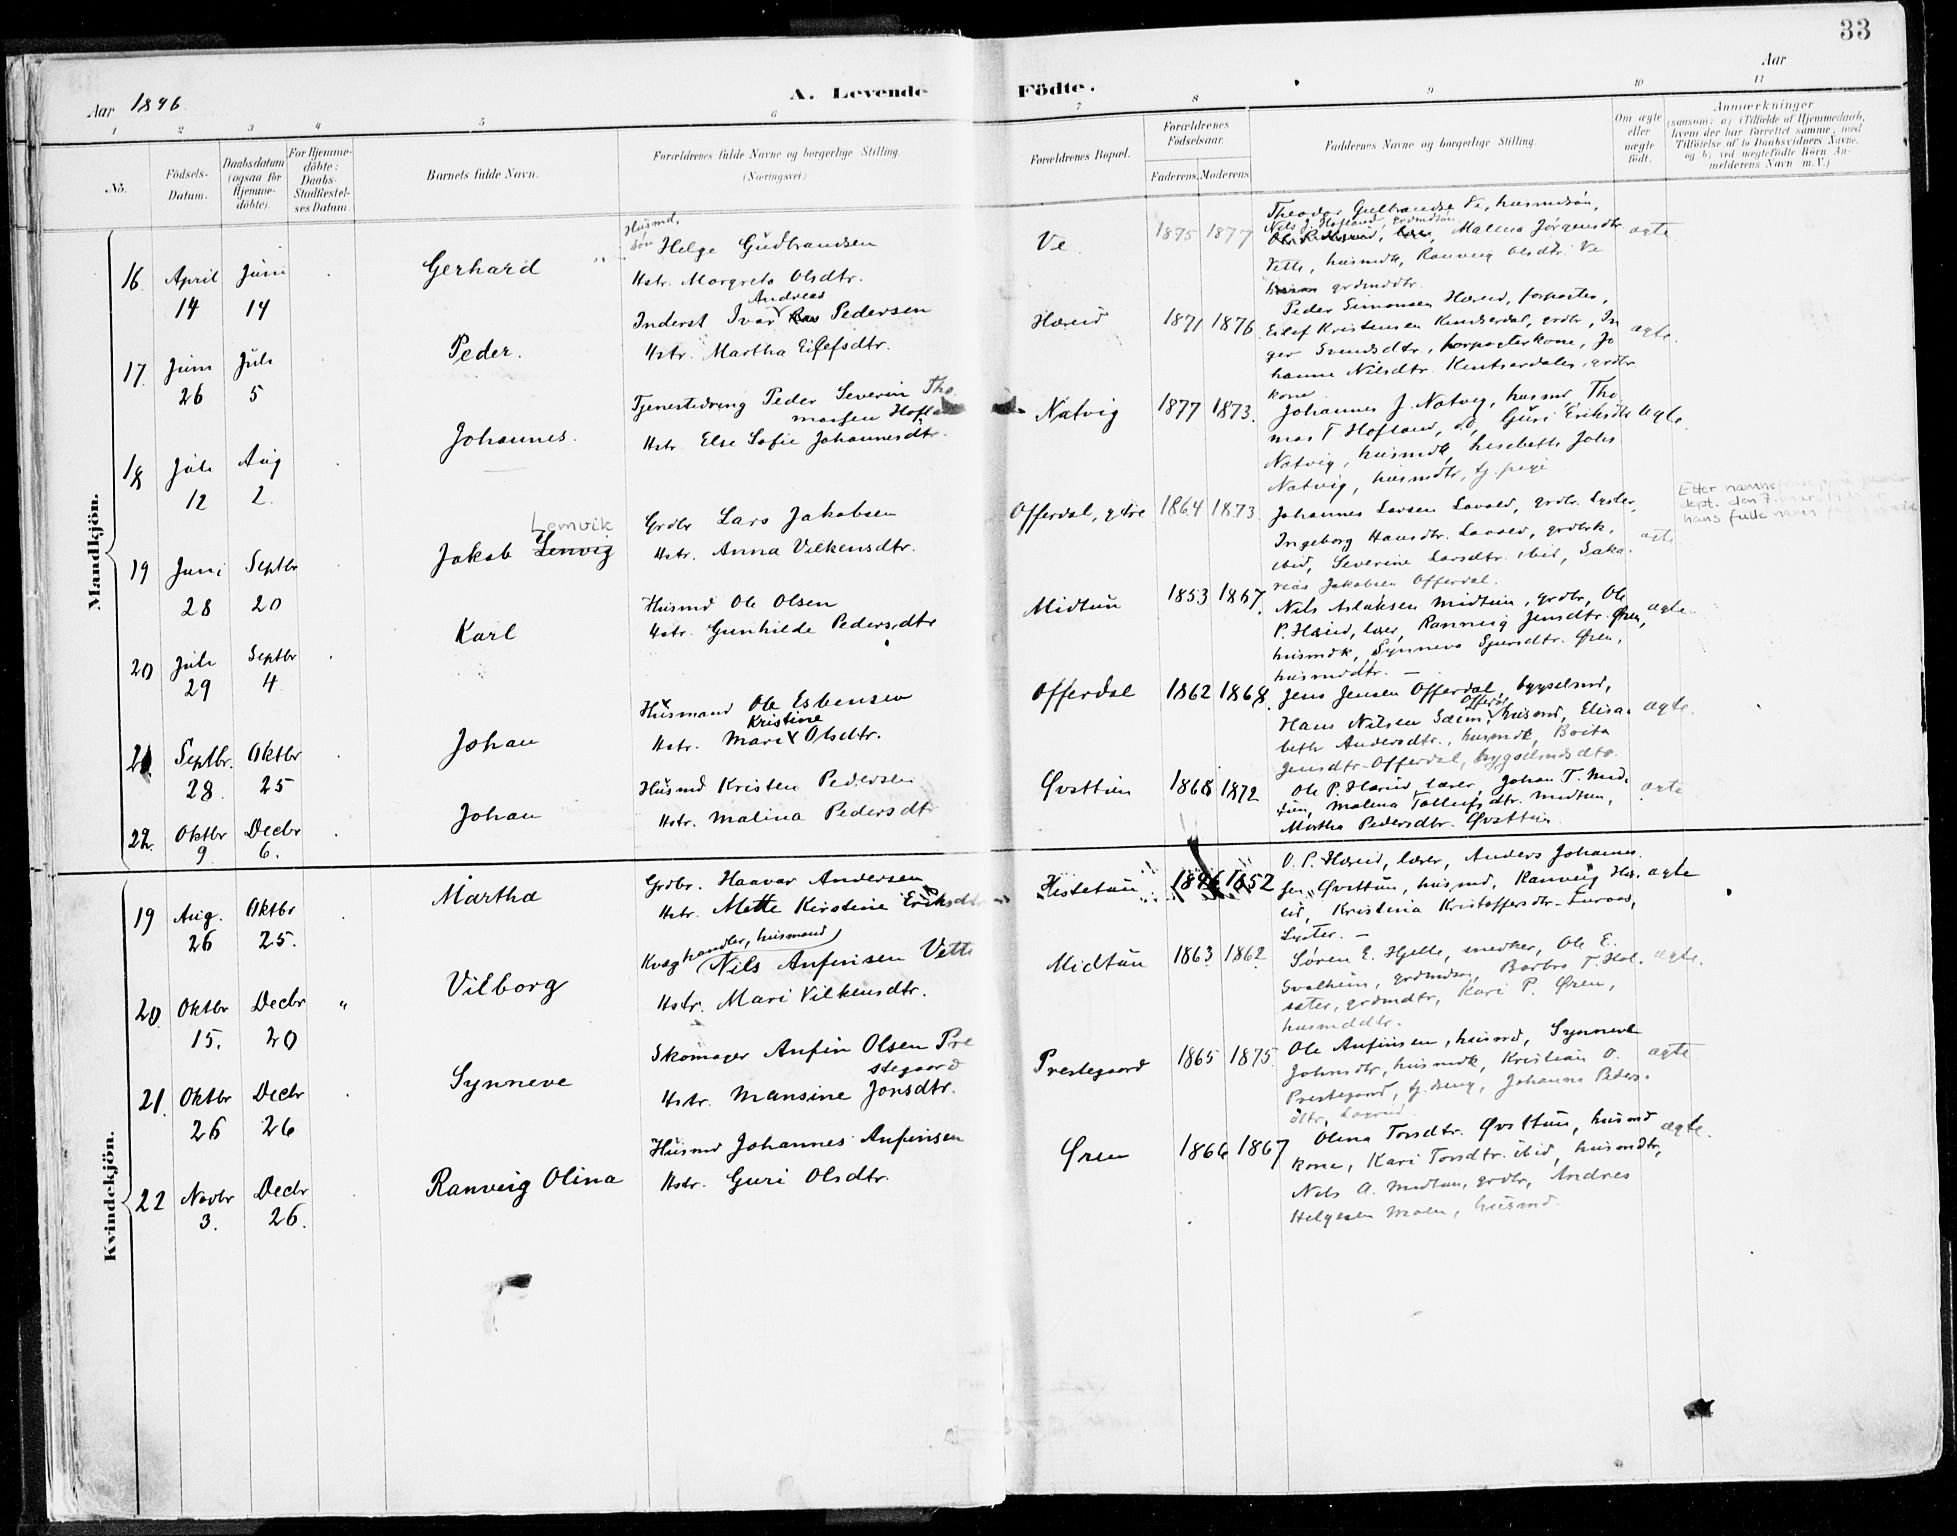 33
Aar 1896.
A. Levende Födte.
Aar
1 2 3 4 5 6 7 8 9 10 11
No.
Födsels-Datum.
Daabsdatum (ogsaa for Hjemme-döbte).
For Hjemme-döbte: Daabs-Stadfæstel-ses Datum
Barnets fulde Navn.
Forældrenes fulde Navne og borgerlige Stilling.
(Næringsvei.)
Forældrenes Bopæl.
Forældrenes Födselsaar.
Faderens. Moderens.
Faddernes Navne og borgerlige Stilling.
Om ægte eller uægte födt.
Anmærkninger
(sansom: a) i Tilfælde af Hjemmedaab, hvem der har forrettet samme, med Tilföielse af to Daabsvidners Navne, og b) ved uægtefödte Börn An-melderens Navn m.V.)
Mandkjön.
16. April 14 Juni 14
Gerhard
Husmd. sön Helge Gudbrandsen
Hstr. Margreta Olsdtr.
Ve
1875 1877
Theodor Gulbrandse Ve, husmdsön,
Nels J. Hofland, grdmdsön
Malena Jørgensdtr
Vette, husmdk, Ranveig Olsdtr. Ve
grdmddtr.
ægte
17. Juni 26 Juli 5
Peder.
Andreas
Inderst Ivar Pedersen
Hstr. Martha Eilefsdtr.
Hæreid
1871 1876
Peder Simonsen Hæreid, forpagter,
Eilef Kristensen Kindserdal, grdbr, In
ger Svendsdtr, forpagterkone, Jo
hanne Nilsdtr. , grdbr
kone
ægte.
18 Juli 12 Aug 2.
Johannes.
Tjenestedreng Peder Severin Tho
massen Hofland
Hstr. Else Sofie Johannesdtr.
Natvig
1877 1873.
Johannes J. Natvig, husmd, Tho
mas T. Hofland, do, Guri Eriksdtr
Natvig, husmdk, Lisebeth Johs
Natvig, husmdtr, tj. pige
ægte.
19 Juni 28 Septbr 20
Lemvik
Jakob Lenvig
Grdbr Lars Jakobsen
Hstr. Anna Vilkensdtr.
Offerdal, ytre
1864 1873
Johannes Larsen Lavold, grdbr. Lyster,
Ingeborg Hansdtr. Lavold, grdbrk.
ibid, Severine Larsdtr. ibid, Saka.
rias Jakobsen Offerdal.
ægte.
hans fulle navn
20 Juli 29 Septbr 4
Karl
Husmd Ole Olsen
Hstr. Gunhilde Pedersdtr
Midtun
1853 1867
Nils Aslaksen Midtun, grdbr, Ole
P. Hæreid, lærer, Ranveig Jensdtr. Øren,
husmdk, Synneva Sjursdtr. Øren,
husmddtr. —
ægte.
21. Septbr. 28. Oktbr 25
Johan
Husmand Ole Esbensen
Kristine
Hstr. Mari Olsdtr.
Offerdal
1862 1868.
Jens Jensen Offerdal, bygselmd,
Offerdal
Hans Nilsen Sæim, husmd, Elisa-
beth Andersdtr., husmdk, Brita
Jensdtr. Offerdal, bygselmdsdtr.
ægte.
22. Oktbr 9 Decbr 6.
Johan
Husmd Kristen Pedersen
Hstr. Malina Pedersdtr
Qvsttun
1868 1872
Ole P. Hæreid, lærer, Johan T. Mid.
tun, Malena Tollefsdtr. Midtun,
Martha Pedersdtr. Qvsttun.
ægte
Kvindekjön.
19 Aug. 26 Oktbr 25.
Martha
Grdbr. Haavar Andersen
Hstr. Mette Kirstine Eriksdtr
Hestetun
1846 1852
O. P. Hæreid, lærer, Anders Johannes
sen Qvsttun, husmd, Ranveig Hær.
eid, Kristina Kristoffersdtr.
Lyster. —
ægte
20. Oktbr 15. Decbr 20 "
Vilborg
Kvæghandler, husmand
Nils Anfinsen Vette
Hstr. Mari Vilkensdtr.
Midtun
1863 1862
Søren E. Hjelle, snedker, Ole E.
Svalheim, grdmdsøn, Barbro T. Hol.
sæter, grdmdtr, Kari P. Øren,
husmddtr.
ægte.
21. Oktbr 26 Decbr 26
Synneve
Skomager Anfin Olsen Pre
stegaard
Hstr. Mansine Jonsdtr.
Prestegaard
1865 1875
Ole Anfinsen, husmd, Synneve
Johnsdtr, husmdk, Kristian O.
Prestegaard, tj.dreng, Johanna Peders.
dtr,
ægte
22 Novbr 3. Decbr 26.
Ranveig Olina
Husmd Johannes Anfinsen
Hstr. Guri Olsdtr.
Øren
1866 1867
Olina Torsdtr. Qvsttun, husmd
kone, Kari Torsdtr. ibid, husmdtr,
Nils A. Midtun, grdbr, Andres
Helgesen Moen, husmd.
ægte.